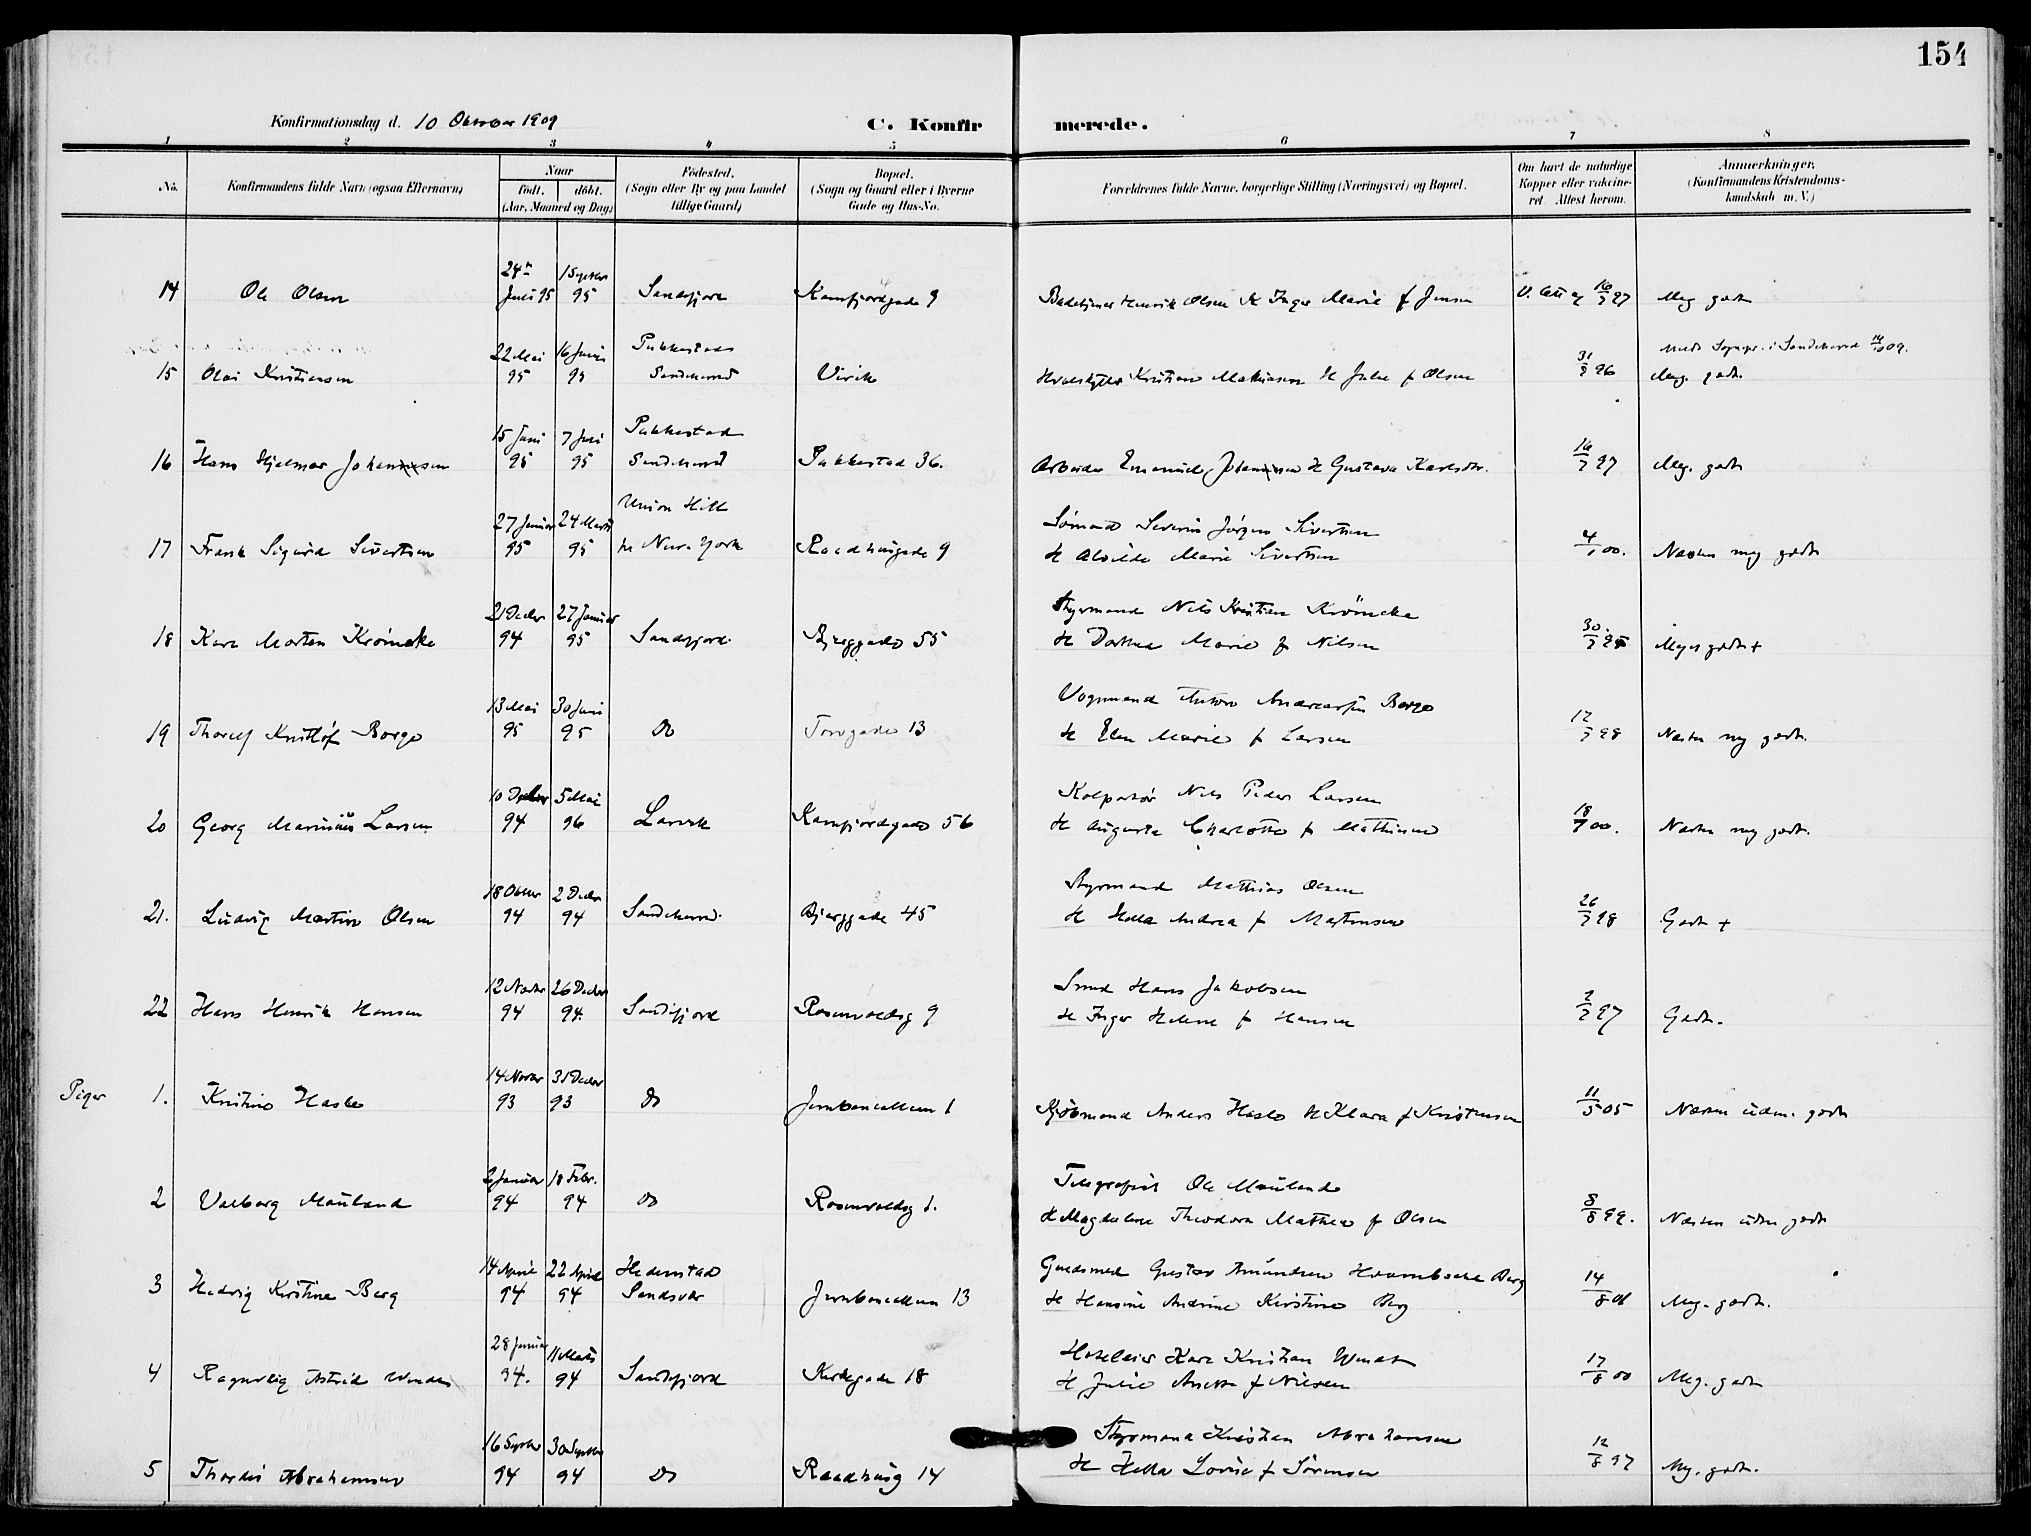 154
Konfirmationsdag d. 10 Oktober 1909
C. Konfirmerede.
1 2 3 4 5 6 7 8
No.
Konfirmandens fulde Navn (ogsaa Efternavn)
Naar
født. døbt.
(Aar, Maaned og Dag)
Fødested.
(Sogn eller By og paa Landet
tillige Gaard)
Bopæl.
(Sogn og Gaard eller i Byerne
Gade og Hus-No.
Forældrenes fulde Navne, borgerlige Stilling (Næringsvei) og Bopæl.
Om havt de naturlige
Kopper eller vakcine-
ret Attest herom.
Anmærkninger,
(Konfirmandens Kristendoms-
kundskab m. V.)
24de 1 Septbr
14 Ole Olsen Juli 95 95 Sandefjord Kamfjordgade 9 Henrik Olsen H Inger Marie f Jensen 16/3 97 Meg godt
22 Mai 16 Juni Pukkestad Meldt Sognepr. i Sandeherred 14/10 09.
15 Olai Kristiansen 95 95 Sandeherred Virik Hvalskytter Kristian Mathiasen H Julie f Olsen 31/8 96 Meg. godt.
15 Juni 7 Juli Pukkestad
16 Hans Hjalmar Johansen 95 95 Sandeherred Pukkestad 36. Arbeider Emanuel Johansen H Gustava Karlsdtr. 16/3 97 Meg. godt
27 Januar 24 Marts Union Hill Sømand Severin Jørgen Sivertsen
17 Frank Sigurd Sivertsen 95 95 New York Raadhusgade 9 H Alvilde Marie Sivertsen 4/1 00. Næsten meg godt
21 Decbr 27 Januar Styrmand Nils Kristian Krömcke
18 Karl Morten Krömcke 94 95 Sandefjord. Bjerggade 55 H Dorthea Marie f Nilsen 30/3 95 Meget godt +
13 Mai 30 Juni Vognmand Anton Andreassen Borge
19 Thorleif Kristlof Borge 95 95 Do Torvgade 13 H Elen Marie f Larsen 12/3 98 Næsten meg godt.
10 Decbr 5 Mai Kolportør Nils Peder Larsen
20 Georg Marinius Larsen 94 96 Larvik Kamfjordgade 56 H Augusta Charlotte f Mathisen 18/7 00. Næsten meg godt.
18 Oktbr 2 Decbr Styrmand Mathias Olsen
21. Ludvig Martin Olsen 94 94 Sandeherred. Bjerggade 45 H Hella Andrea f Martinsen 26/3 98 Godt +
12 Novbr 26 Decbr Smed Hans Jakobsen
22 Hans Henrik Hansen 94 94. Sandefjord Rosenvoldsg 9 H Inger Helene f Hansen 2/3 97 Godt.
14 Novbr 31 Decbr
Piger 1. Kristine Hasle 93 93 Do Jernbanealleen 1 Kjøbmand Anders Hasle H Klara f Kristensen 11/5 05 Næsten udm. godt
2 Januar 18 Febr. Telegrafist Ole Mauland
2 Valborg Mauland 94 94 Do Rosenvoldsg 1. H Magdalene Theodora Mathea f Olsen 8/8 99. Næsten udm godt
14 April 22 April Hedenstad Guldsmed Gustav Amundsen Berg
3 Hedvig Kirstine Berg 94 94 Sandsvær Jernbanealleen 13 H Hansine Andrine Kirstine Berg 14/8 01 Meg. godt.
28 Januar 11 Marts Hoteleier Karl Kristian Wendt
4 Ragnveig Astrid Wendt 94. 94 Sandefjord Kirkegade 18 H Julie Anette f Nielsen 17/8 00 Meg. godt
16 Septbr 30 Septbr Styrmand Kristian Abrahamsen
5 Thordis Abrahamsen 94 94 Do Raadhusg 14 H Hella Lovise f Sørensen 12/8 97 Meg. godt.